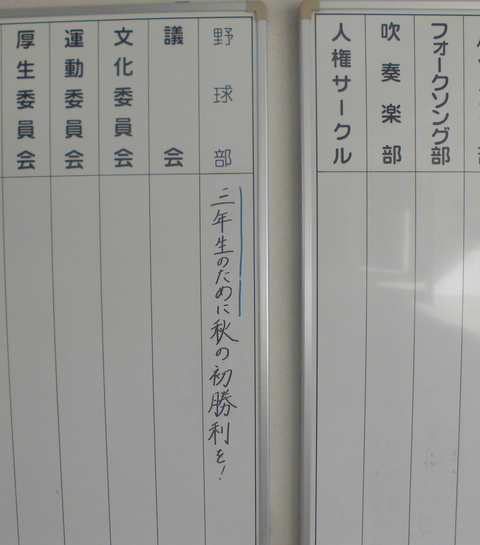 野球部
三年生のために秋の初勝利を！
議会
文化委員会
運動委員会
厚生委員会
フォークソング部
吹奏楽部
人権サークル